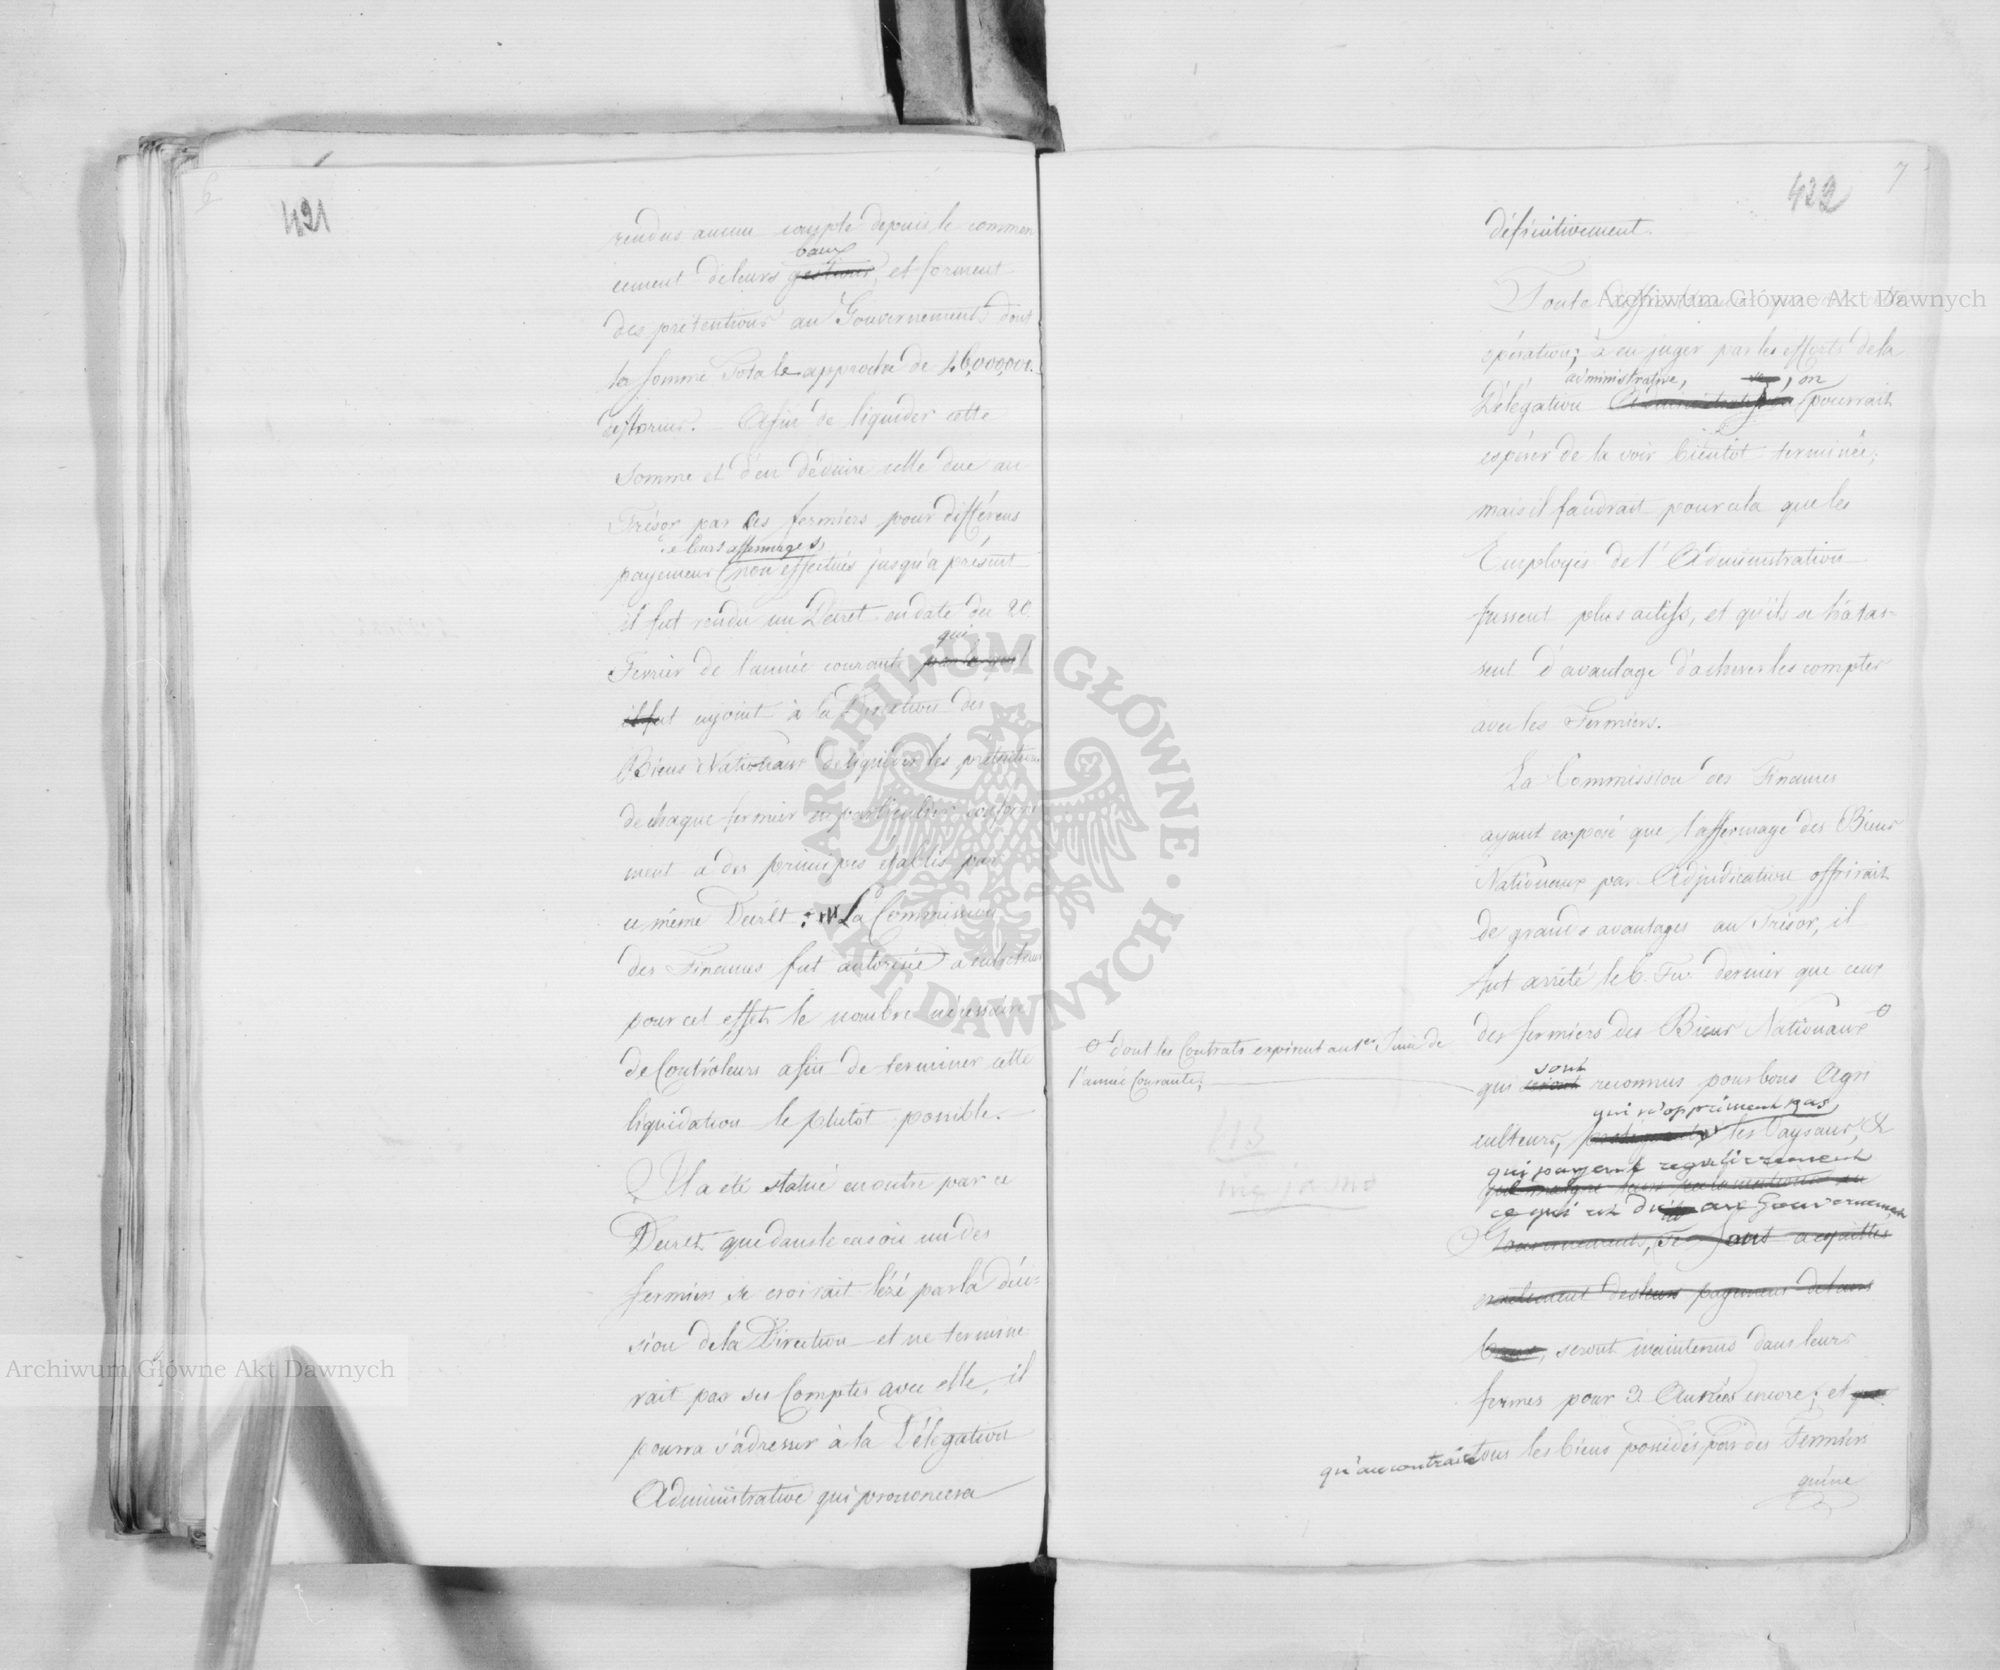 6
421
rendus aucun compte depuis le commen
baux
cement de leurs gestions, et forment
des prétentions au Gouvernement dont
la somme Totale approche de 16,000,000.
de florins. Afin de liquider cette
Somme et d'en déduire celle due au
Trésor par les fermiers pour différens
de leurs affermages,
payemens non effectués jusqu'à présent
il fut rendu un Decret en date du 20
qui
Fevrier de l'année courante par lequel
il fut enjoint à la Direction des
Biens Nationaux de liquider les prétentions
de chaque fermier en particulier conform
ment à des principes établis par
ce même Decrèt: La Commission
des Finances fut autorisée à
pour cet effet le nombre nécessaire
de Contrôleurs afin de terminer cette
liquidation le plutôt possible.
Il a eté statué en outre par ce
Decret que dans le cas où un des
fermiers se croirait lézé par la déci-
sion de la Direction et ne termine
rait pas ses Comptes avec elle, il
pourra s'adresser à la Délégation
Administrative qui prononcera
7
422
définitivement.
Toute
opération; à en juger par les efforts de la
administrative, on
Délégation Administrative pourrait
espérer de la voir bientôt terminée;
mais il faudrait pour cela que les
Employés de l'Administration
fussent plus actifs, et qu'ils se hâtas-
sent d'avantage d'achever les comptes
avec les Fermiers.
La Commission des Finances
ayant exposé que l'affermage des Biens
Nationaux par Adjudication offrirait
de grands avantages au Trésor, il
fut arrêté le 6. Fev. dernier que ceux
des fermiers des Biens Nationaux
dont les Contrats expirent au 1er Juin de
l'année Courante,
sont
qui seront reconnus pour bons Agri
qui n'oppriment pas
culteurs, les Paysans, &
qui payent regulierement
qui malgre leurs reclamations au
ce qui est dû au Gouvernement
Gouvernement, se sont acquittés
exactement de leurs payemens de leurs
baux, seront maintenus dans leurs
fermes pour 3 Années encore; et que
qu'au contraire tous les biens possédés par des Fermiers
qui ne
nie jasno
ARCHIWUM GŁÓWNE AKT DAWNYCH
Archiwum Główne Akt Dawnych
Archiwum Główne Akt Dawnych